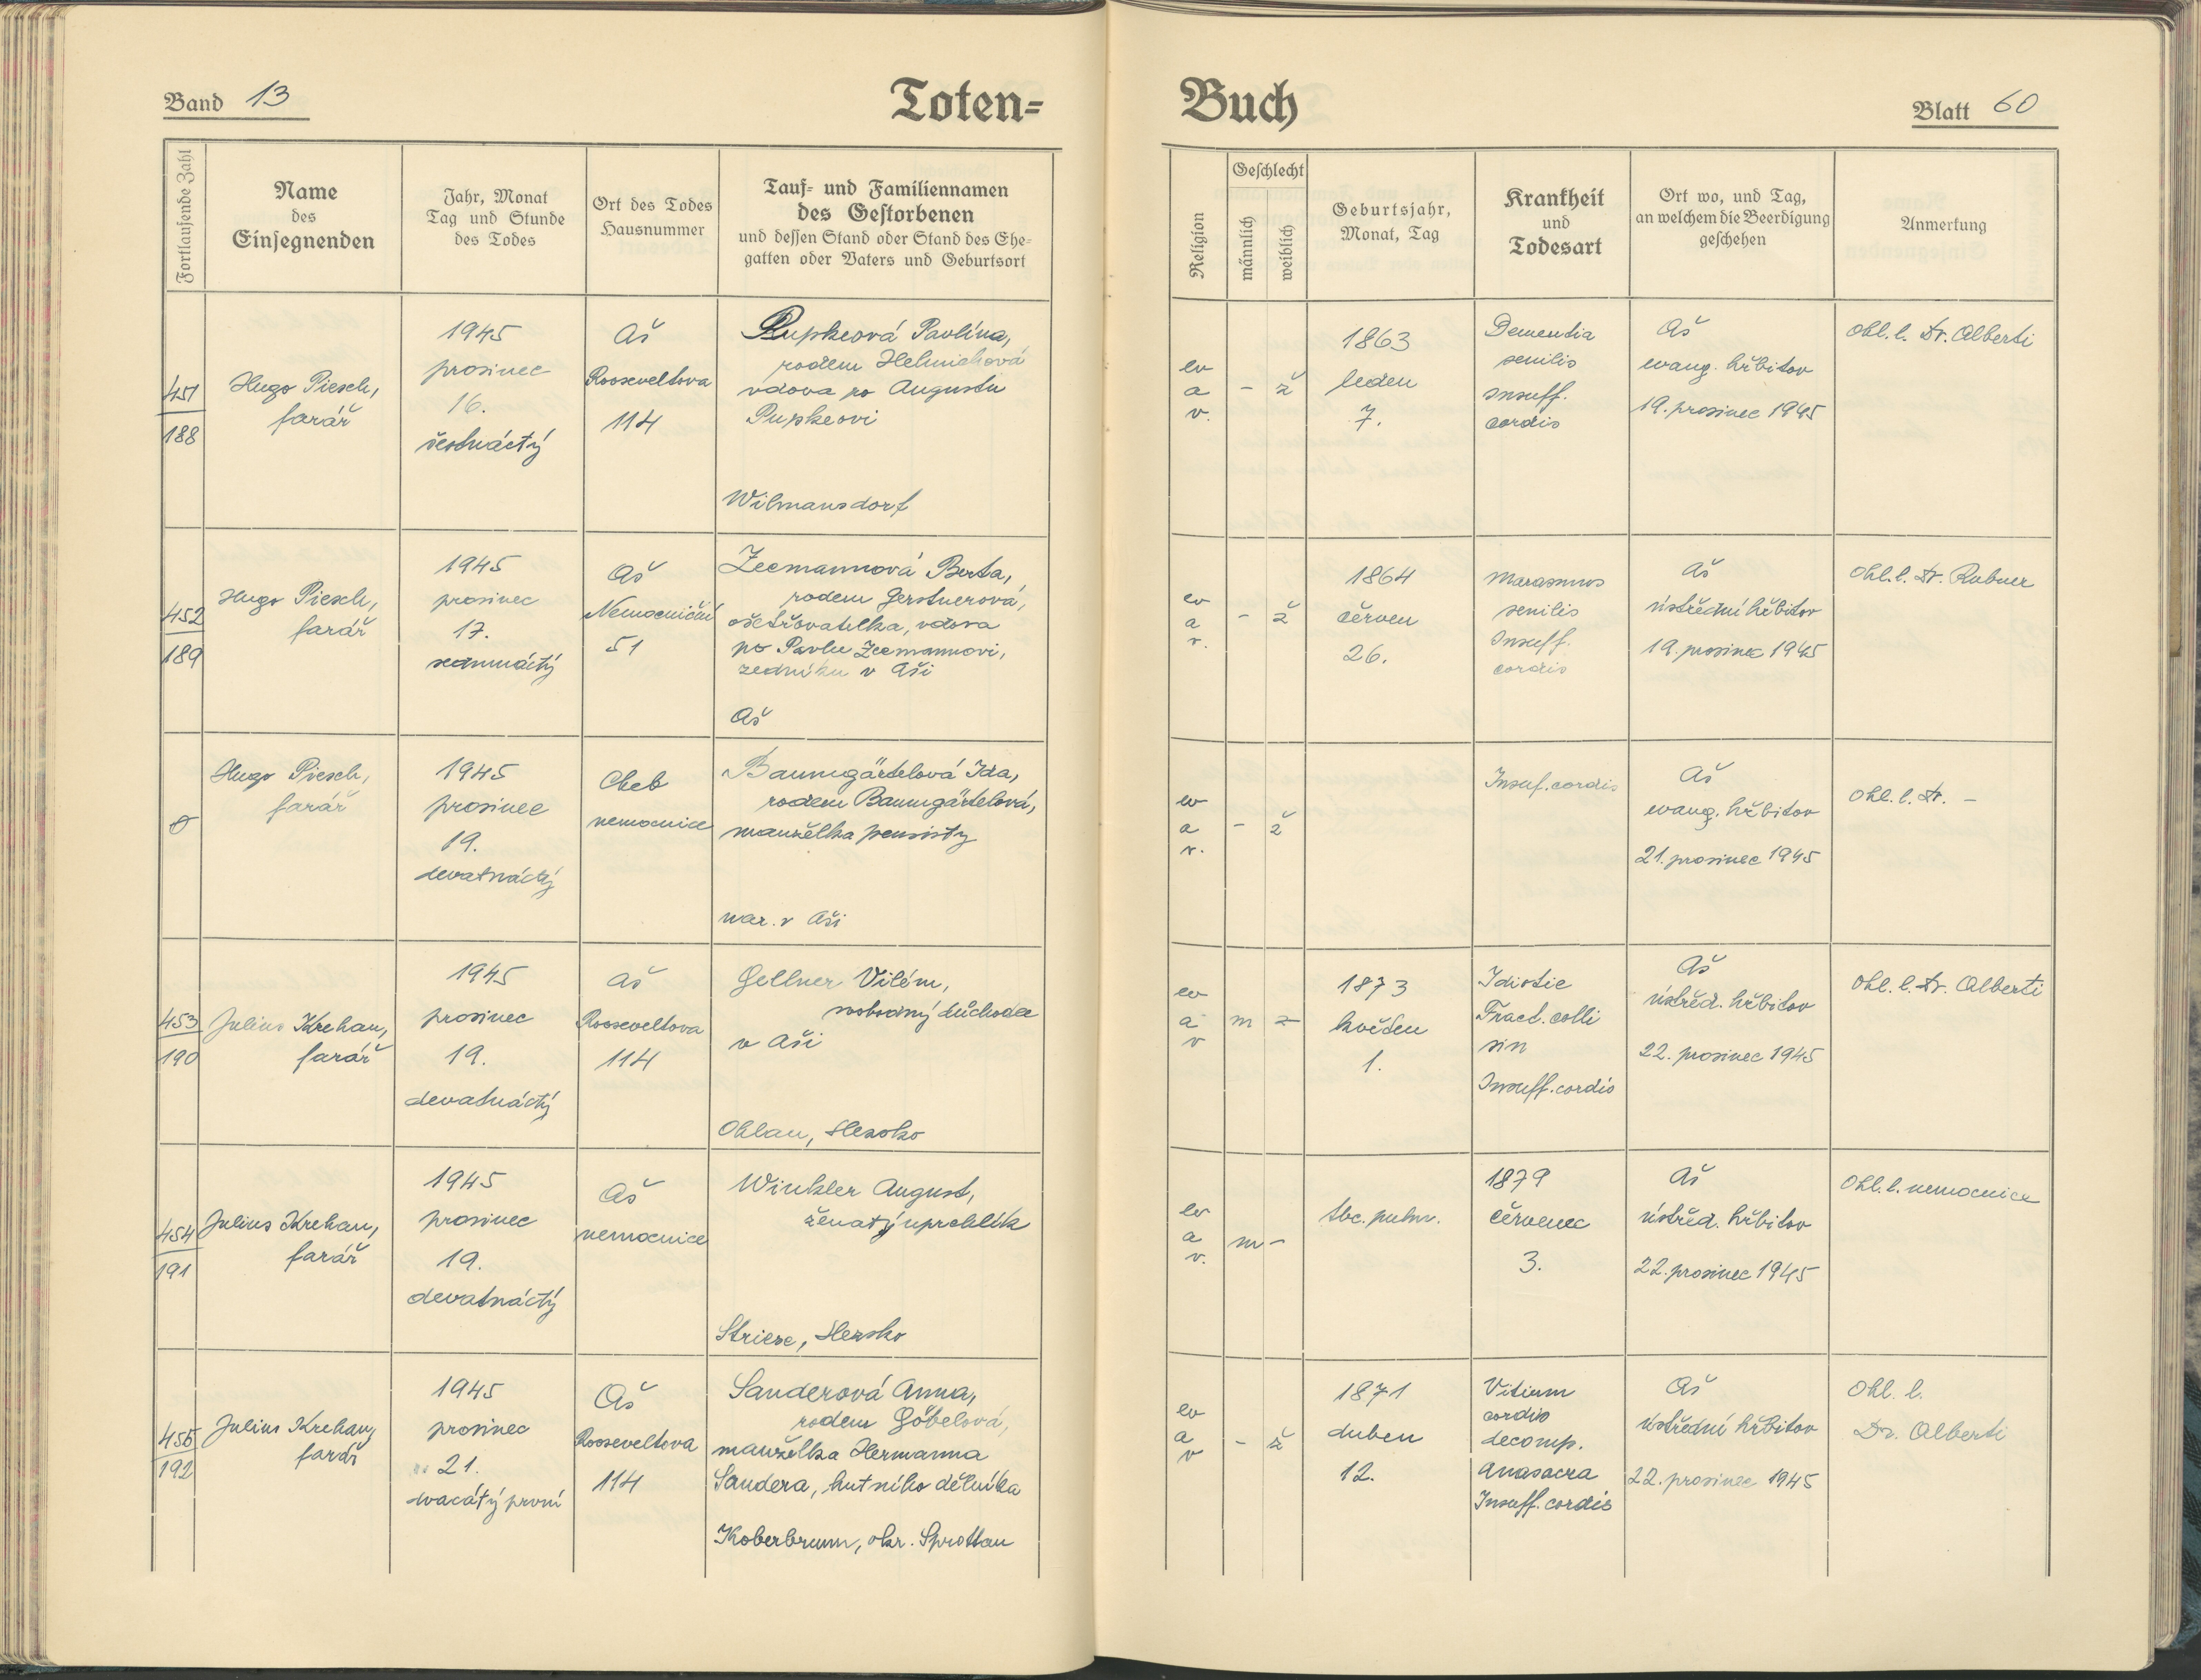 Band 13
Toten-
Fortlaufende Zahl
Name
des
Einsegnenden
Jahr, Monat
Tag und Stunde
des Todes
Ort des Todes
Hausnummer
Tauf- und Familiennamen
des Gestorbenen
und dessen Stand oder Stand des Ehe-
gatten oder Vaters und Geburtsort
451
188
Hugo Piesch,
farář
1945
prosinec
16.
šestnáctý
Aš
Rooseveltova
114
Pupkeová Pavlína,
rodem Helmichová
vdova po Augustu
Pupkeovi
Wilmansdorf
452
189
Hugo Piesch,
farář
1945
prosinec
17.
sedmnáctý
Aš
Nemocniční
51
Zeemannová Berta,
rodem Gerstnerová,
ošetřovatelka, vdova
po Pavlu Zeemannovi,
zedníku v Aši
Aš
Hugo Piesch,
farář
1945
prosinec
19.
devatnáctý
Cheb
nemocnice
Baumgärtelová Ida,
rodem Baumgärtelová,
manželka pensisty
nar. v Aši
453
190
Julius Krehan,
farář
1945
prosinec
19.
devatnáctý
Aš
Rooseveltova
114
Gellner Vilém,
svobodný důchodce
v Aši
Ohlau, Slezsko
454
191
Julius Krehan,
farář
1945
prosinec
19.
devatnáctý
Aš
nemocnice
Winkler August,
ženatý uprchlík
Striese, Slezsko
455
192
Julius Krehan,
farář
1945
prosinec
21.
dvacátý první
Aš
Rooseveltova
114
Sanderová Anna,
rodem Göbelová,
manželka Hermanna
Sandera, hutního dělníka
Koberbrunn, okr. Sprottau
Buch
Blatt 60
Religion
Geschlecht
männlich
weiblich
Geburtsjahr,
Monat, Tag
Krankheit
und
Todesart
Ort wo, und Tag,
an welchem die Beerdigung
geschehen
Anmerkung
ev
a
v.
-
ž
1863
leden
7.
Dementia
senilis
Insuff.
cordis
Aš
evang. hřbitov
19. prosinec 1945
Ohl. l. Dr. Alberti
ev
a
v.
-
ž
1864
červen
26.
Marasmus
senilis
Insuff.
cordis
Aš
ústřední hřbitov
19. prosinec 1945
Ohl. l. Dr. Rubner
ev
a
v.
-
ž
Insuf. cordis
Aš
evang. hřbitov
21. prosinec 1945
Ohl. l. Dr. -
ev
a
v
m
1873
květen
1.
Idiotie
Fract. colli
sin
Insuff. cordis
Aš
ústřed. hřbitov
22. prosinec 1945
Ohl. l. Dr. Alberti
ev
a
v.
m
-
tbc. pulm.
1879
červenec
3.
Aš
ústřed. hřbitov
22. prosinec 1945
Ohl. l. nemocnice
ev
a
v
-
ž
1871
duben
12.
Vitium
cordis
decomp.
Anasacra
Insuff. cordis
Aš
ústřední hřbitov
22. prosinec 1945
Ohl. l.
Dr. Alberti